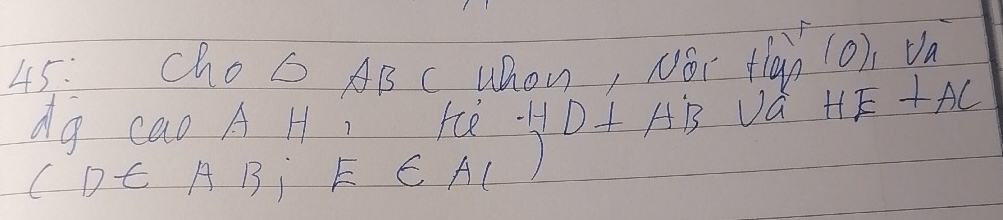 45: Cho △ ABC nhọn, Nội tiếp (O), Và
đg cao AH, Kẻ HD⊥ AB Và HE ⊥AC
(D∈ AB; E ∈ AC)